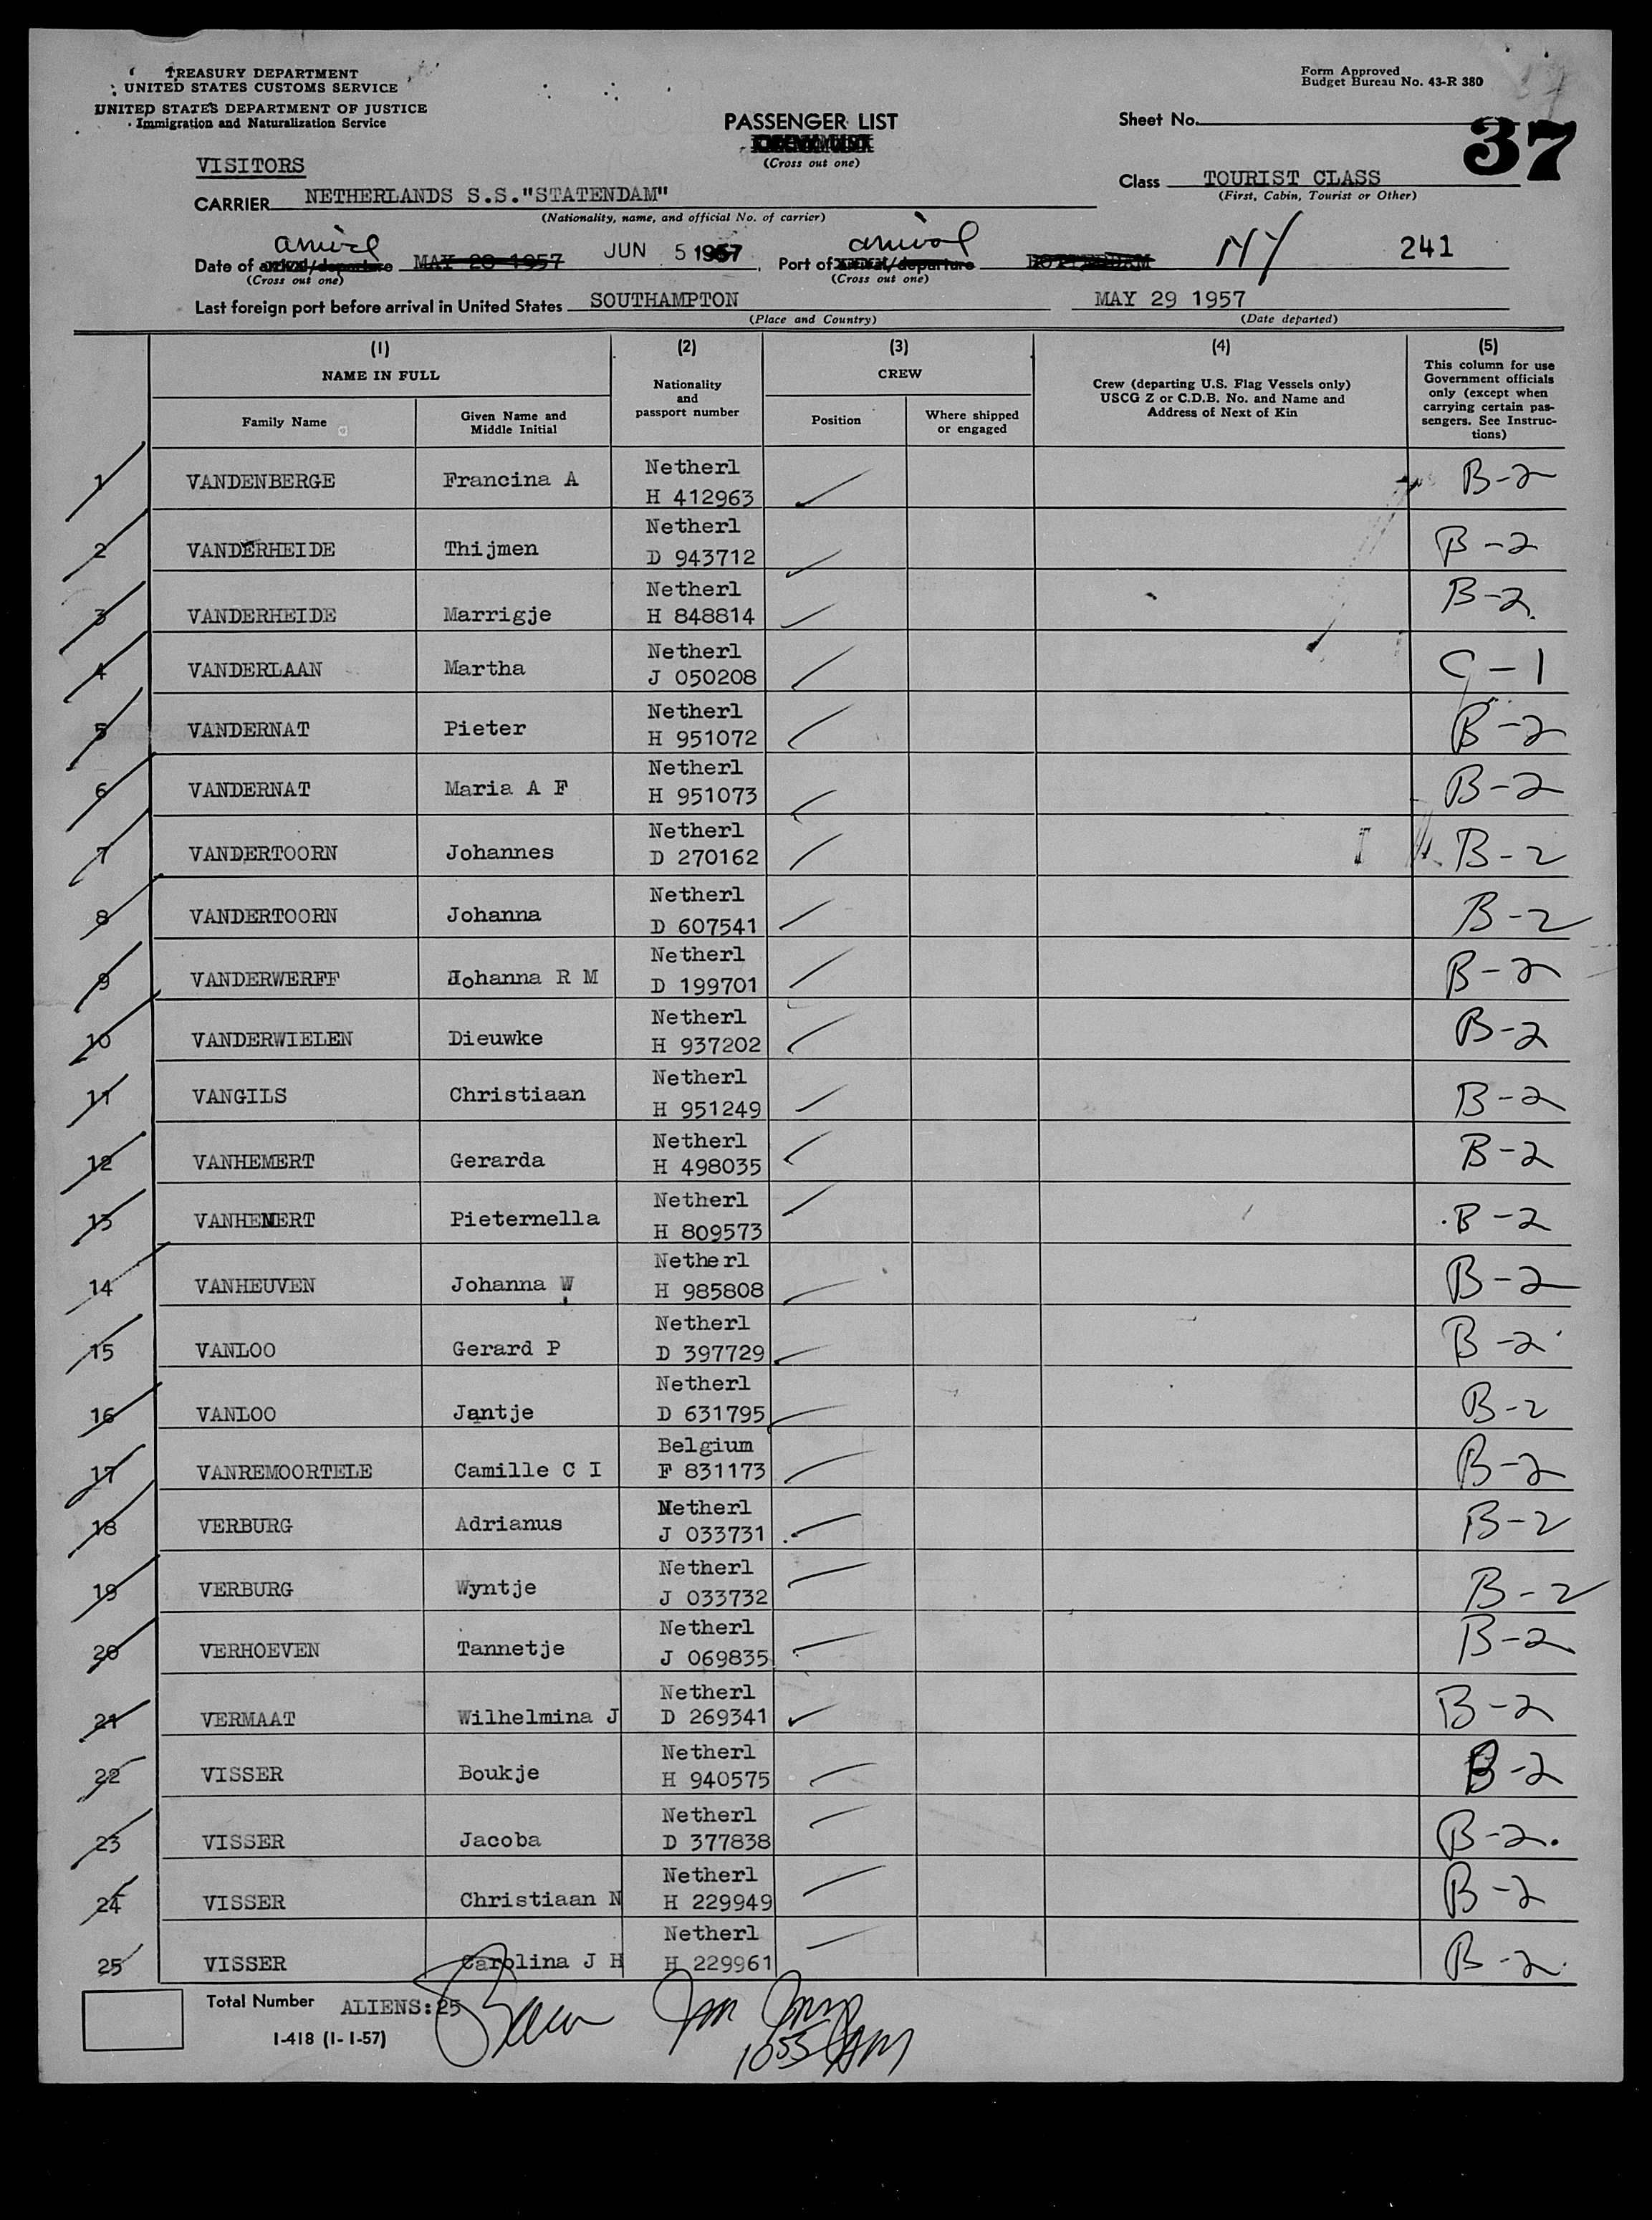 TREASURY DEPARTMENT
UNITED STATES CUSTOMS SERVICE
UNITED STATES DEPARTMENT OF JUSTICE
Immigration and Naturalization Service
Form Approved
Budget Bureau No. 43-R 380
PASSENGER LIST
(Cross out one)
Sheet No. 37
VISITORS
CARRIER NETHERLANDS S.S."STATENDAM"
(Nationality, name, and official No. of carrier)
Class TOURIST CLASS
(First, Cabin, Tourist or Other)
arrival arrival
Date of arrival/departure MAY 28 1957 JUN 5 1957 Port of arrival/departure ROTTERDAM NY 241
(Cross out one) (Cross out one)
Last foreign port before arrival in United States SOUTHAMPTON MAY 29 1957
(Place and Country) (Date departed)
(1) NAME IN FULL
Family Name
Given Name and Middle Initial
(2) Nationality and passport number
(3) CREW
Position
Where shipped or engaged
(4) Crew (departing U.S. Flag Vessels only) USCG Z or C.D.B. No. and Name and Address of Next of Kin
(5) This column for use Government officials only (except when carrying certain passengers. See Instructions)
1 VANDENBERGE Francina A Netherl H 412963 B-2
2 VANDERHEIDE Thijmen Netherl D 943712 B-2
3 VANDERHEIDE Marrigje Netherl H 848814 B-2
4 VANDERLAAN Martha Netherl J 050208 C-1
5 VANDERNAT Pieter Netherl H 951072 B-2
6 VANDERNAT Maria A F Netherl H 951073 B-2
7 VANDERTOORN Johannes Netherl D 270162 B-2
8 VANDERTOORN Johanna Netherl D 607541 B-2
9 VANDERWERFF Johanna R M Netherl D 199701 B-2
10 VANDERWIELEN Dieuwke Netherl H 937202 B-2
11 VANGILS Christiaan Netherl H 951249 B-2
12 VANHEMERT Gerarda Netherl H 498035 B-2
13 VANHEMERT Pieternella Netherl H 809573 B-2
14 VANHEUVEN Johanna W Netherl H 985808 B-2
15 VANLOO Gerard P Netherl D 397729 B-2
16 VANLOO Jantje Netherl D 631795 B-2
17 VANREMOORTELE Camille C I Belgium F 831173 B-2
18 VERBURG Adrianus Netherl J 033731 B-2
19 VERBURG Wyntje Netherl J 033732 B-2
20 VERHOEVEN Tannetje Netherl J 069835 B-2
21 VERMAAT Wilhelmina J Netherl D 269341 B-2
22 VISSER Boukje Netherl H 940575 B-2
23 VISSER Jacoba Netherl D 377838 B-2
24 VISSER Christiaan N Netherl H 229949 B-2
25 VISSER Carolina J H Netherl H 229961 B-2
Total Number ALIENS:25
I-418 (1-1-57)